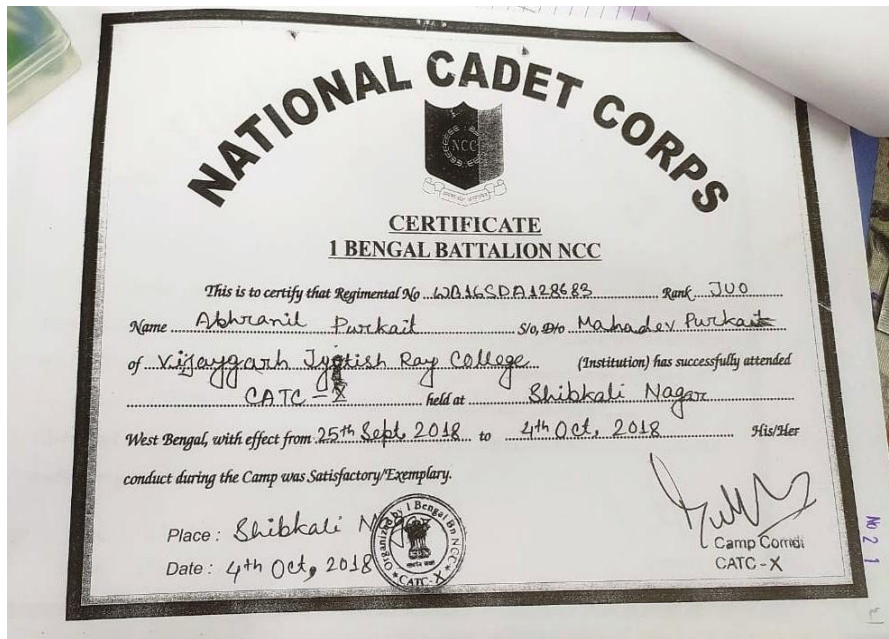 NATIONAL CADET CORPS
NCC
CERTIFICATE
1 BENGAL BATTALION NCC
This is to certify that Regimental No WB16SDA128683 Rank JUO
Name Abhranil Purkait S/o, D/o Mahadev Purkait
of Vijaygarh Jyotish Ray College (Institution) has successfully attended
CATC-X held at Shibkali Nagar
West Bengal, with effect from 25th Sept, 2018 to 4th Oct, 2018 His/Her
conduct during the Camp was Satisfactory/Exemplary.
Place : Shibkali Nagar
Date : 4th Oct, 2018
Organized by 1 Bengal Bn NCC
CATC-X
Camp Comdt
CATC-X
No 21